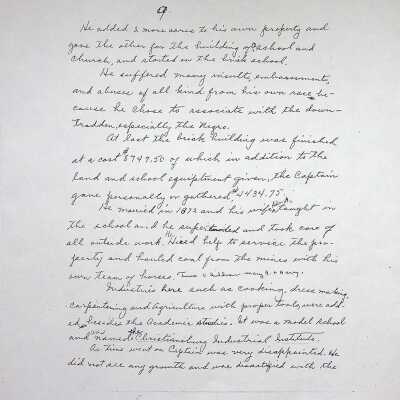 9
He added 3 more acres to his own property and
gave the other for the building of a school and
church, and started in the brick school.
He suffered many insults, embarrassments,
and abuses of all kind from his own race be-
cause he chose to associate with the down-
trodden, especially the Negro.
At last the brick building was finished
at a cost $749.50 of which in addition to the
land and school equiptment given, the Captain
gave personally or gathered, $434.75.
He married in 1873 and his wife taught in
the school and he superintended and took care of
all outside work. He used help to service the pro-
perty and hauled coal from the mines with his
own team of horses,
Industries here such as cooking, dress making
carpentering and Agriculture with proper tools, were add-
ed, besides the Academic studies. It was a model school
and named the Christiansburg Industrial Institute.
As time went on Captain was very disappointed. He
did not see any growth and was dissatisfied with the